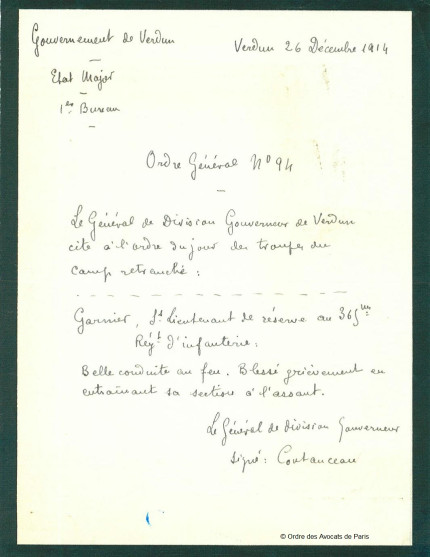 Gouvernement de Verdun
Verdun 26 Décembre 1914
Etat Major
1er Bureau
Ordre Général N° 94
Le Général de Division Gouverneur de Verdun
cite à l'ordre du jour des troupes du
camp retranché :
Garnier, St Lieutenant de réserve au 365me
Régt d'infanterie :
Belle conduite au feu. Blessé grièvement en
entraînant sa section à l'assaut.
Le Général de division Gouverneur
signé : Coutanceau
© Ordre des Avocats de Paris